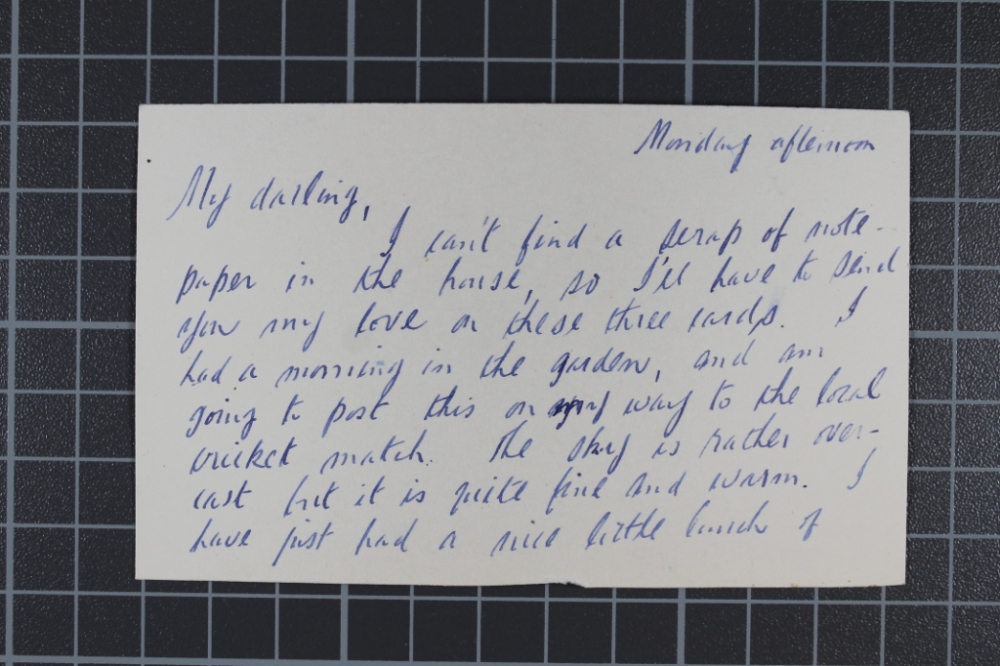 Monday afternoon
My darling,
I can't find a scrap of note-
paper in the house, so I'll have to send
you my love on these three cards. I
had a morning in the garden, and am
going to post this on my way to the local
cricket match. The sky is rather over-
cast but it is quite fine and warm. I
have just had a nice little lunch of